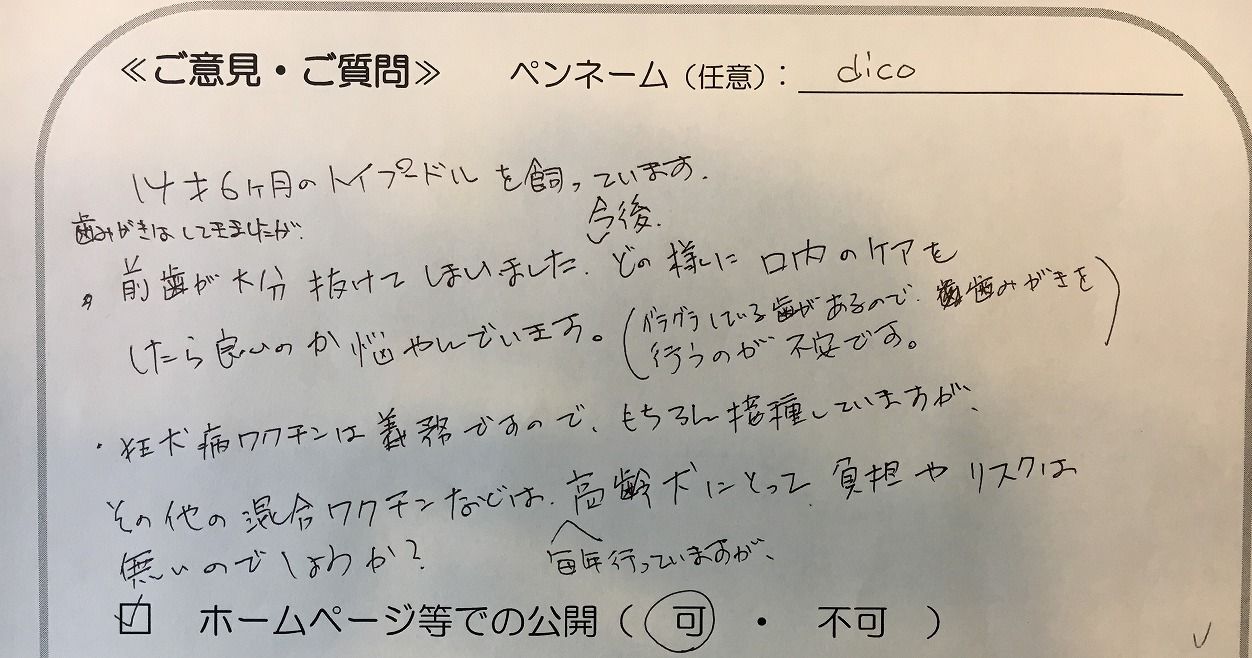 ≪ご意見・ご質問≫ ペンネーム（任意）： dico
14才6ヶ月のトイプードルを飼っています.
歯みがきはしてきましたが.
今後.
・前歯が大分抜けてしまいました. どの様に口内のケアを
したら良いのか悩やんでいます。(グラグラしている歯があるので. 歯みがきを
行うのが不安です。)
・狂犬病ワクチンは義務ですので、もちろん接種していますが、
その他の混合ワクチンなどは. 高齢犬にとって負担やリスクは
毎年行っていますが、
無いのでしょうか?
☑ ホームページ等での公開（ 可 ・ 不可 ）